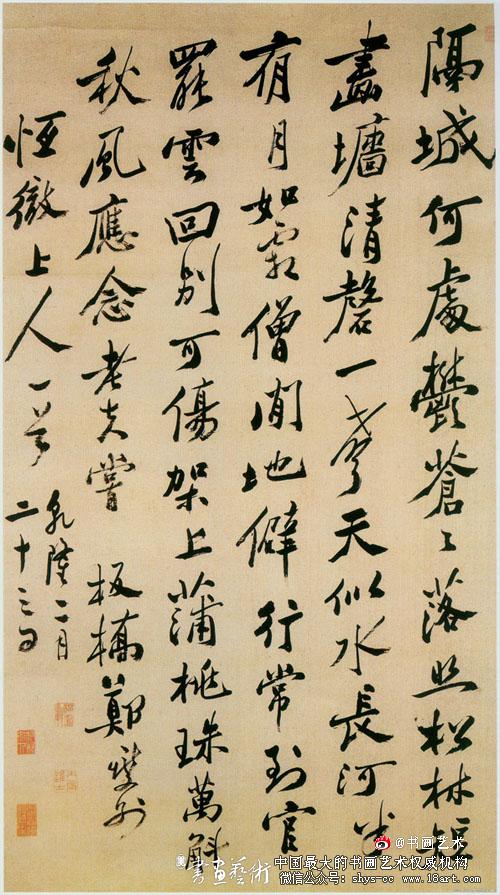 隔城何處鬱蒼々落照松林短
畫墻清磬一聲天似水長河半
有月如霜僧閒地僻行常到官
罷雲回別可傷架上蒲桃珠萬斛
秋風應念老夫嘗 板橋鄭燮
恆徹上人一笑
乾隆二月
二十三日
@书画艺术
書畫藝術
中国最大的书画艺术权威机构
微信公众号: shys-cc www.18art.com